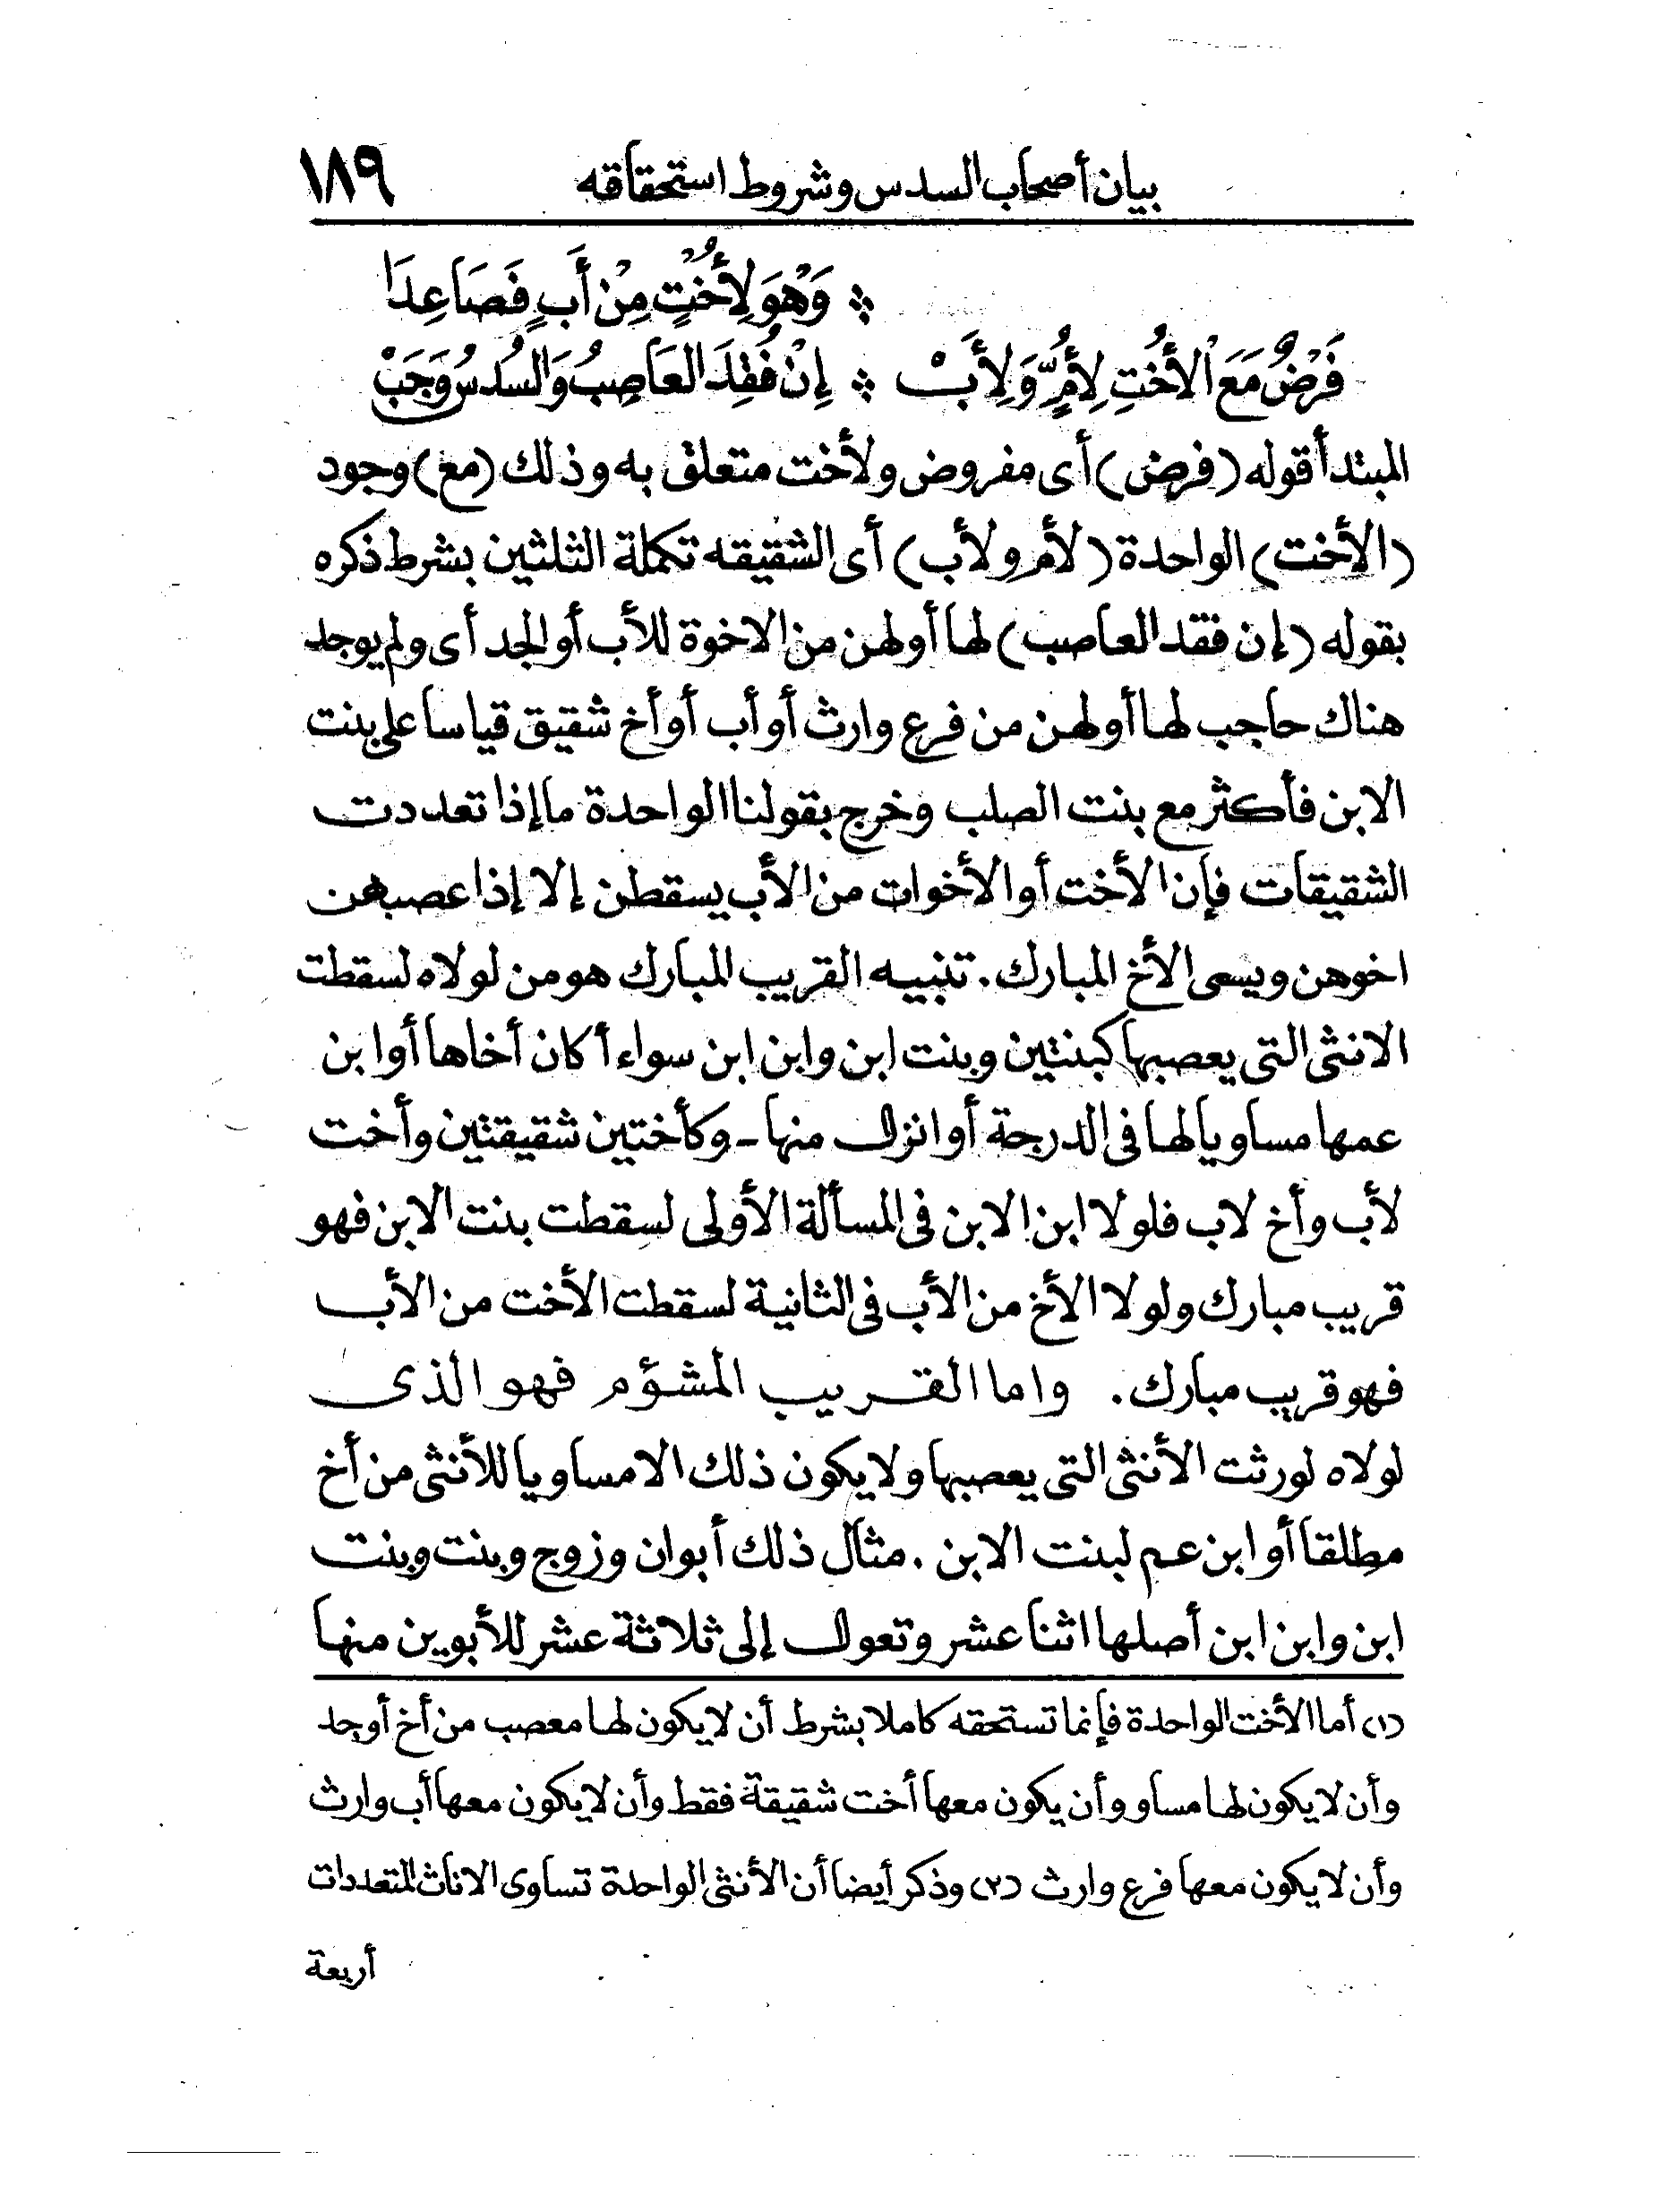 بيان أصحاب السدس وشروط استحقاقه ١٨٩
* وَهْوَ لِأُخْتٍ مِنْ أَبٍ فَصَاعِدَا
فَرْضٌ مَعَ الْأُخْتِ لِأُمٍّ وَلِأَبْ * إِنْ فُقِدَ العَاصِبُ وَالسُدْسُ وَجَبْ
المبتدأ قوله (فرض) أى مفروض ولأخت متعلق به وذلك (مع) وجود
(الأخت) الواحدة (لأم ولأب) أى الشقيقه تكملة الثلثين بشرط ذكره
بقوله (إن فقد العاصب) لها أولهن من الاخوة للأب أو الجد أى ولم يوجد
هناك حاجب لها أولهن من فرع وارث أو أب أو أخ شقيق قياسا على بنت
الابن فأكثر مع بنت الصلب وخرج بقولنا الواحدة ما إذا تعددت
الشقيقات فإن الأخت أو الأخوات من الأب يسقطن إلا إذا عصبهن
اخوهن ويسمى الأخ المبارك. تنبيه القريب المبارك هو من لولاه لسقطت
الانثى التى يعصبها كبنتين وبنت ابن وابن ابن سواء أكان أخاها أو ابن
عمها مساويا لها فى الدرجة أو انزل منها - وكأختين شقيقتين وأخت
لأب وأخ لاب فلولا ابن الابن فى المسألة الأولى لسقطت بنت الابن فهو
قريب مبارك ولولا الأخ من الأب فى الثانية لسقطت الأخت من الأب
فهو قريب مبارك. واما القريب المشؤم فهو الذى
لولاه لورثت الأنثى التى يعصبها ولا يكون ذلك الا مساويا للأنثى من أخ
مطلقا أو ابن عم لبنت الابن . مثال ذلك أبوان وزوج وبنت وبنت
ابن وابن ابن أصلها اثنا عشر وتعول إلى ثلاثة عشر للأبوين منها
(١) أما الأخت الواحدة فإنما تستحقه كاملا بشرط أن لا يكون لها معصب من أخ أوجد
وأن لا يكون لها مساو وأن يكون معها أخت شقيقة فقط وأن لا يكون معها أب وارث
وأن لا يكون معها فرع وارث (٢) وذكر أيضا أن الأنثى الواحدة تساوى الاناث المتعددات
أربعة